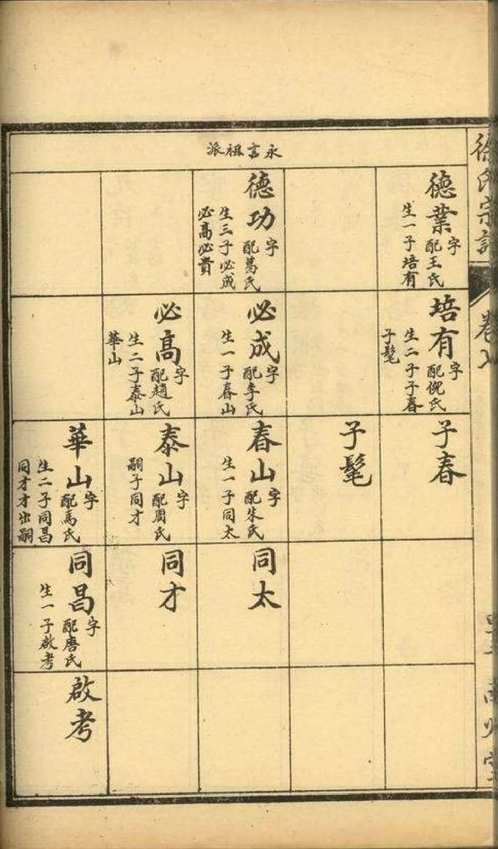 徐氏宗譜
永言祖派
德業
字
配王氏
生一子培有
德功
字
配萬氏
生三子必成
必高必貴
培有
字
配倪氏
生二子子春
子髦
必成
字
配李氏
生一子春山
必高
字
配趙氏
生二子泰山
華山
子春
子髦
春山
字
配朱氏
生一子同太
泰山
字
配周氏
嗣子同才
華山
字
配馬氏
生二子同昌
同才才出嗣
同太
同才
同昌
字
配唐氏
生一子啟考
啟考